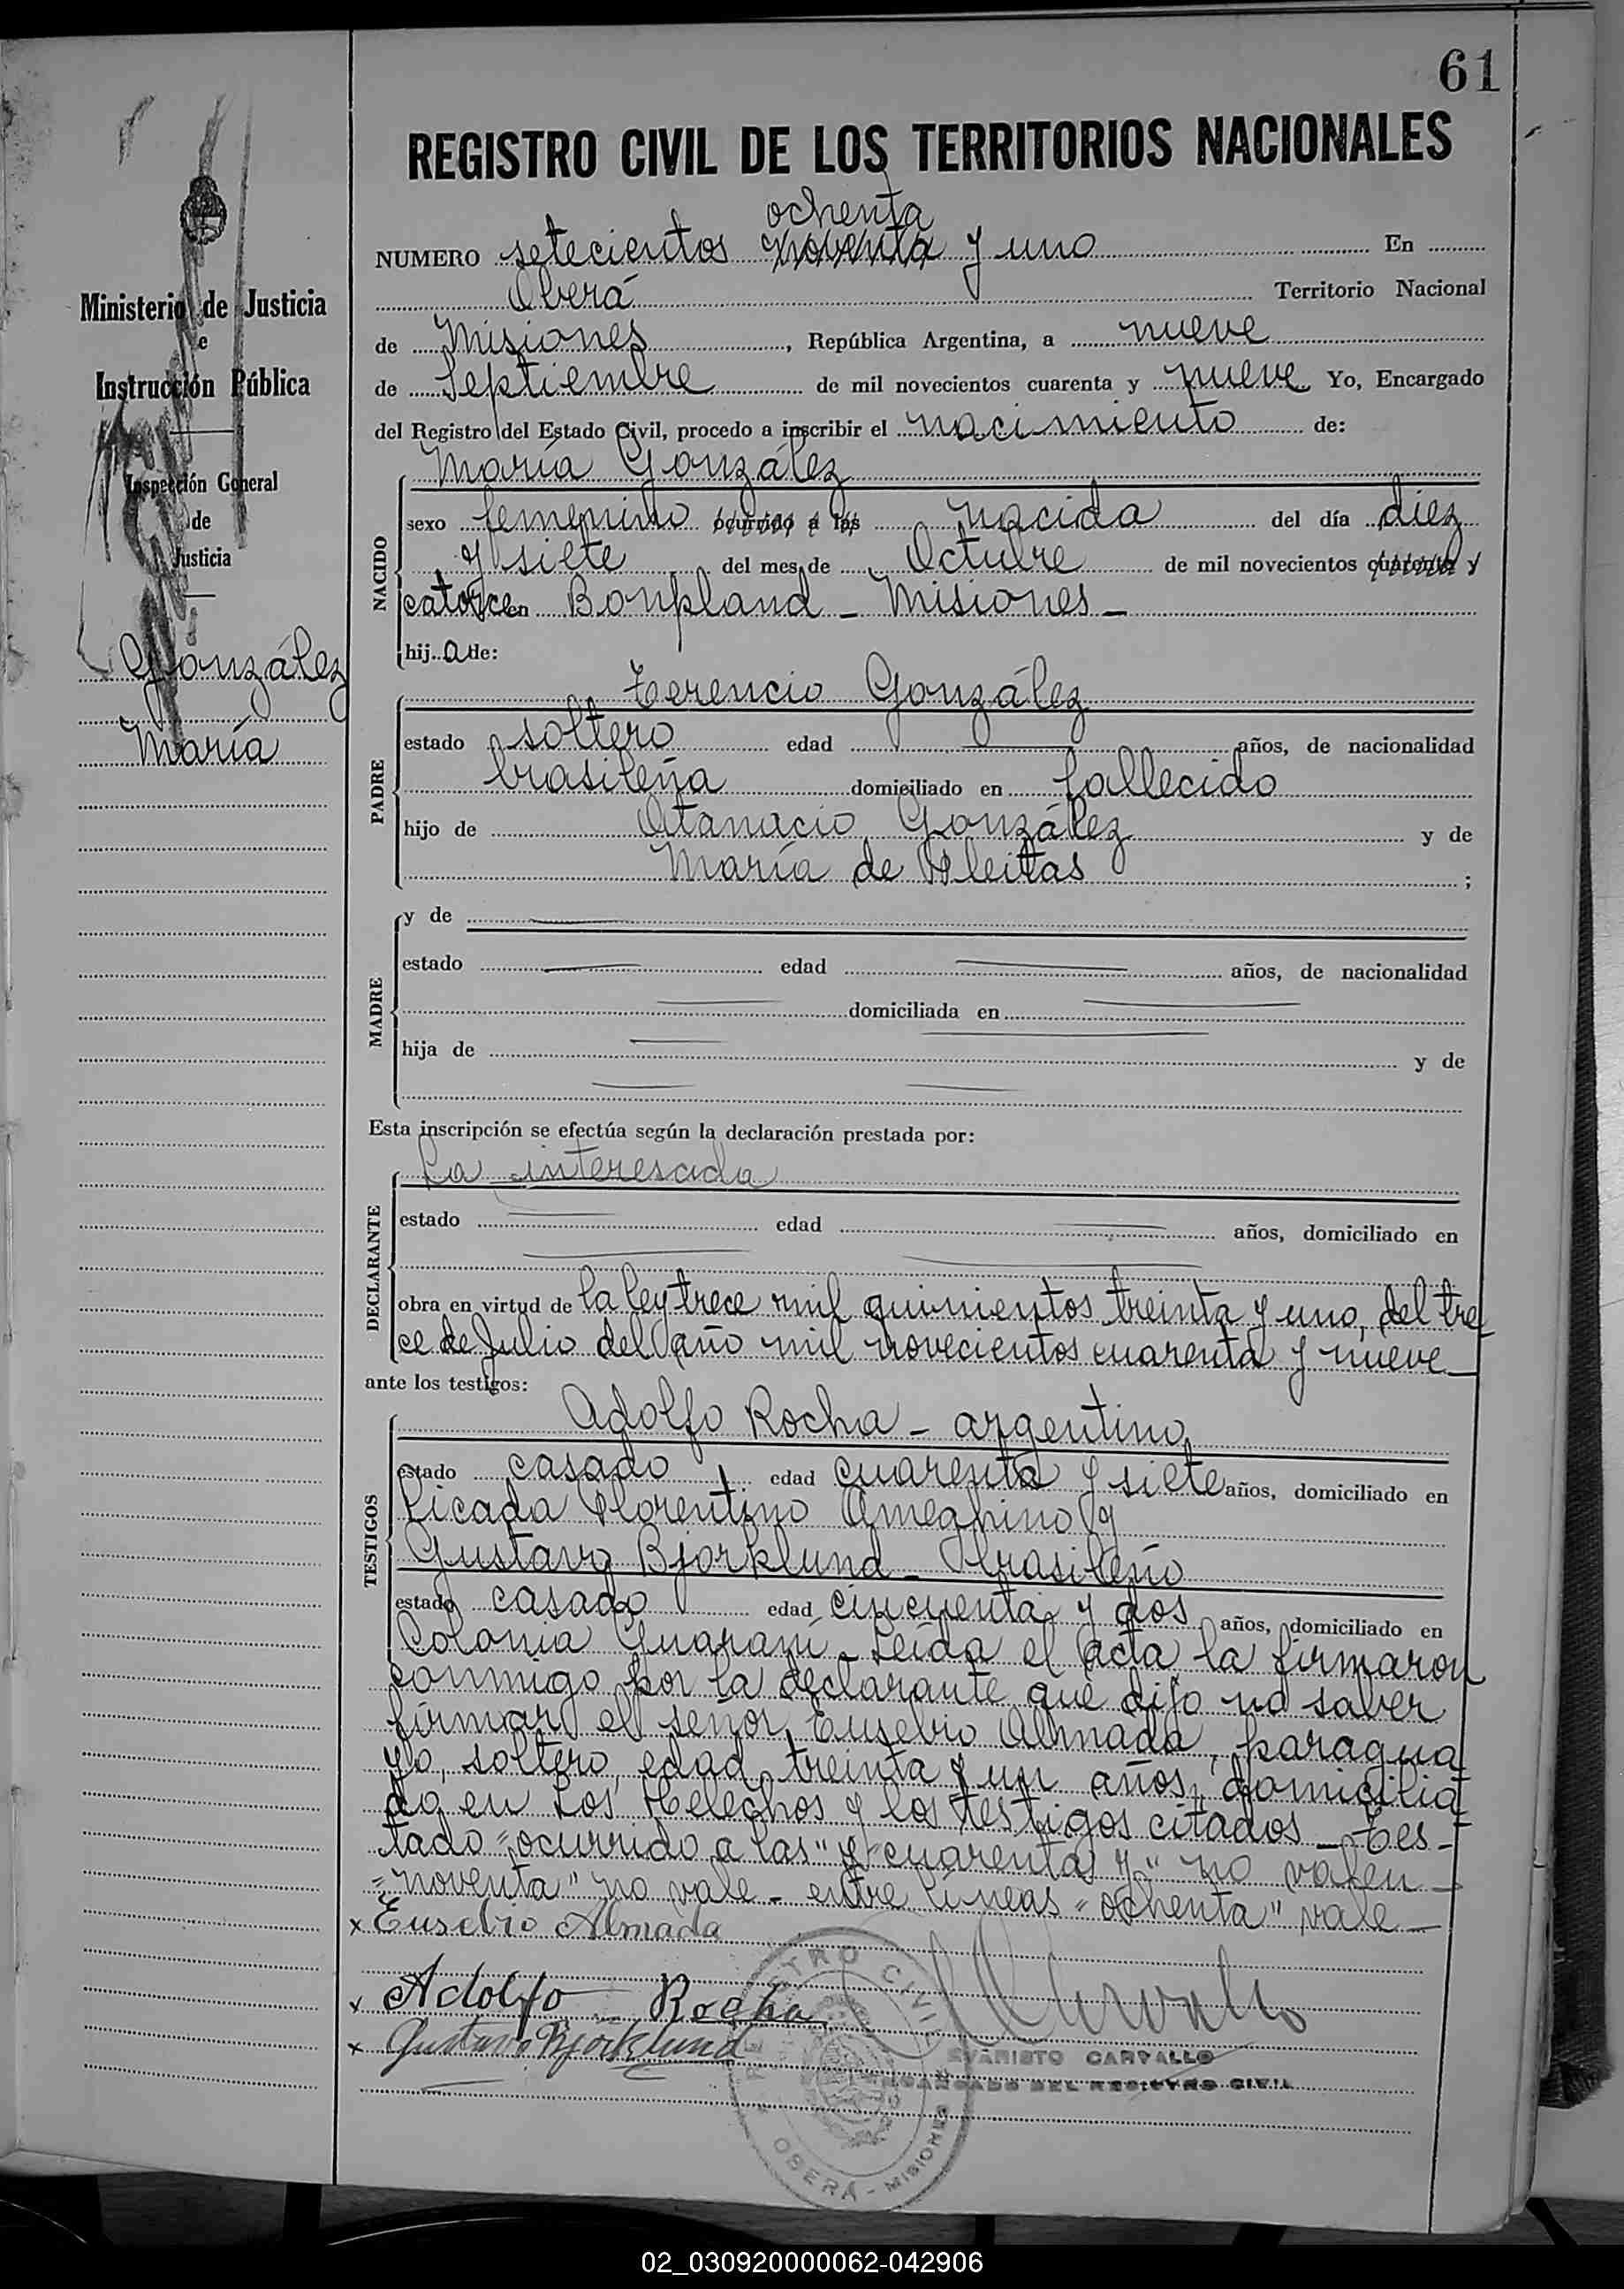 61
REGISTRO CIVIL DE LOS TERRITORIOS NACIONALES
ochenta
NUMERO setecientos noventa y uno En
Oberá Territorio Nacional
de Misiones, República Argentina, a nueve
de Septiembre de mil novecientos cuarenta y nueve Yo, Encargado
del Registro del Estado Civil, procedo a inscribir el nacimiento de:
María González
NACIDO
sexo femenino ocurrido a las nacida del día diez
y siete del mes de Octubre de mil novecientos cuarenta y
catorce en Bonpland - Misiones -
hij a de:
PADRE
Terencio González
estado soltero edad — años, de nacionalidad
brasileña domiciliado en fallecido
hijo de Atanacio González y de
María de Fleitas ;
MADRE
y de —
estado — edad — años, de nacionalidad
— domiciliada en —
hija de — y de
— —
Esta inscripción se efectúa según la declaración prestada por:
DECLARANTE
La interesada
estado — edad — años, domiciliado en
— —
obra en virtud de la ley trece mil quinientos treinta y uno, del tre
ce de Julio del año mil novecientos cuarenta y nueve —
ante los testigos:
TESTIGOS
Adolfo Rocha - argentino
estado casado edad cuarenta y siete años, domiciliado en
Picada Florentino Ameghino y
Gustavo Bjorklund - brasileño
estado casado edad cincuenta y dos años, domiciliado en
Colonia Guaraní - Leída el acta la firmaron
conmigo por la declarante que dijo no saber
firmar el señor Eusebio Almada, paragua
yo, soltero, edad treinta y un años, domicilia
do en Los Helechos y los testigos citados - Tes-
tado "ocurrido a las" y "cuarenta y" no valen -
"noventa" no vale - entre líneas "ochenta" vale -
x Eusebio Almada
x Adolfo Rocha
x Gustavo Bjorklund
Carvallo
EVARISTO CARVALLO
ENCARGADO DEL REGISTRO CIVIL
REGISTRO CIVIL
OBERÁ - MISIONES
Ministerio de Justicia
e
Instrucción Pública
Inspección General
de
Justicia
González
María
02_030920000062-042906